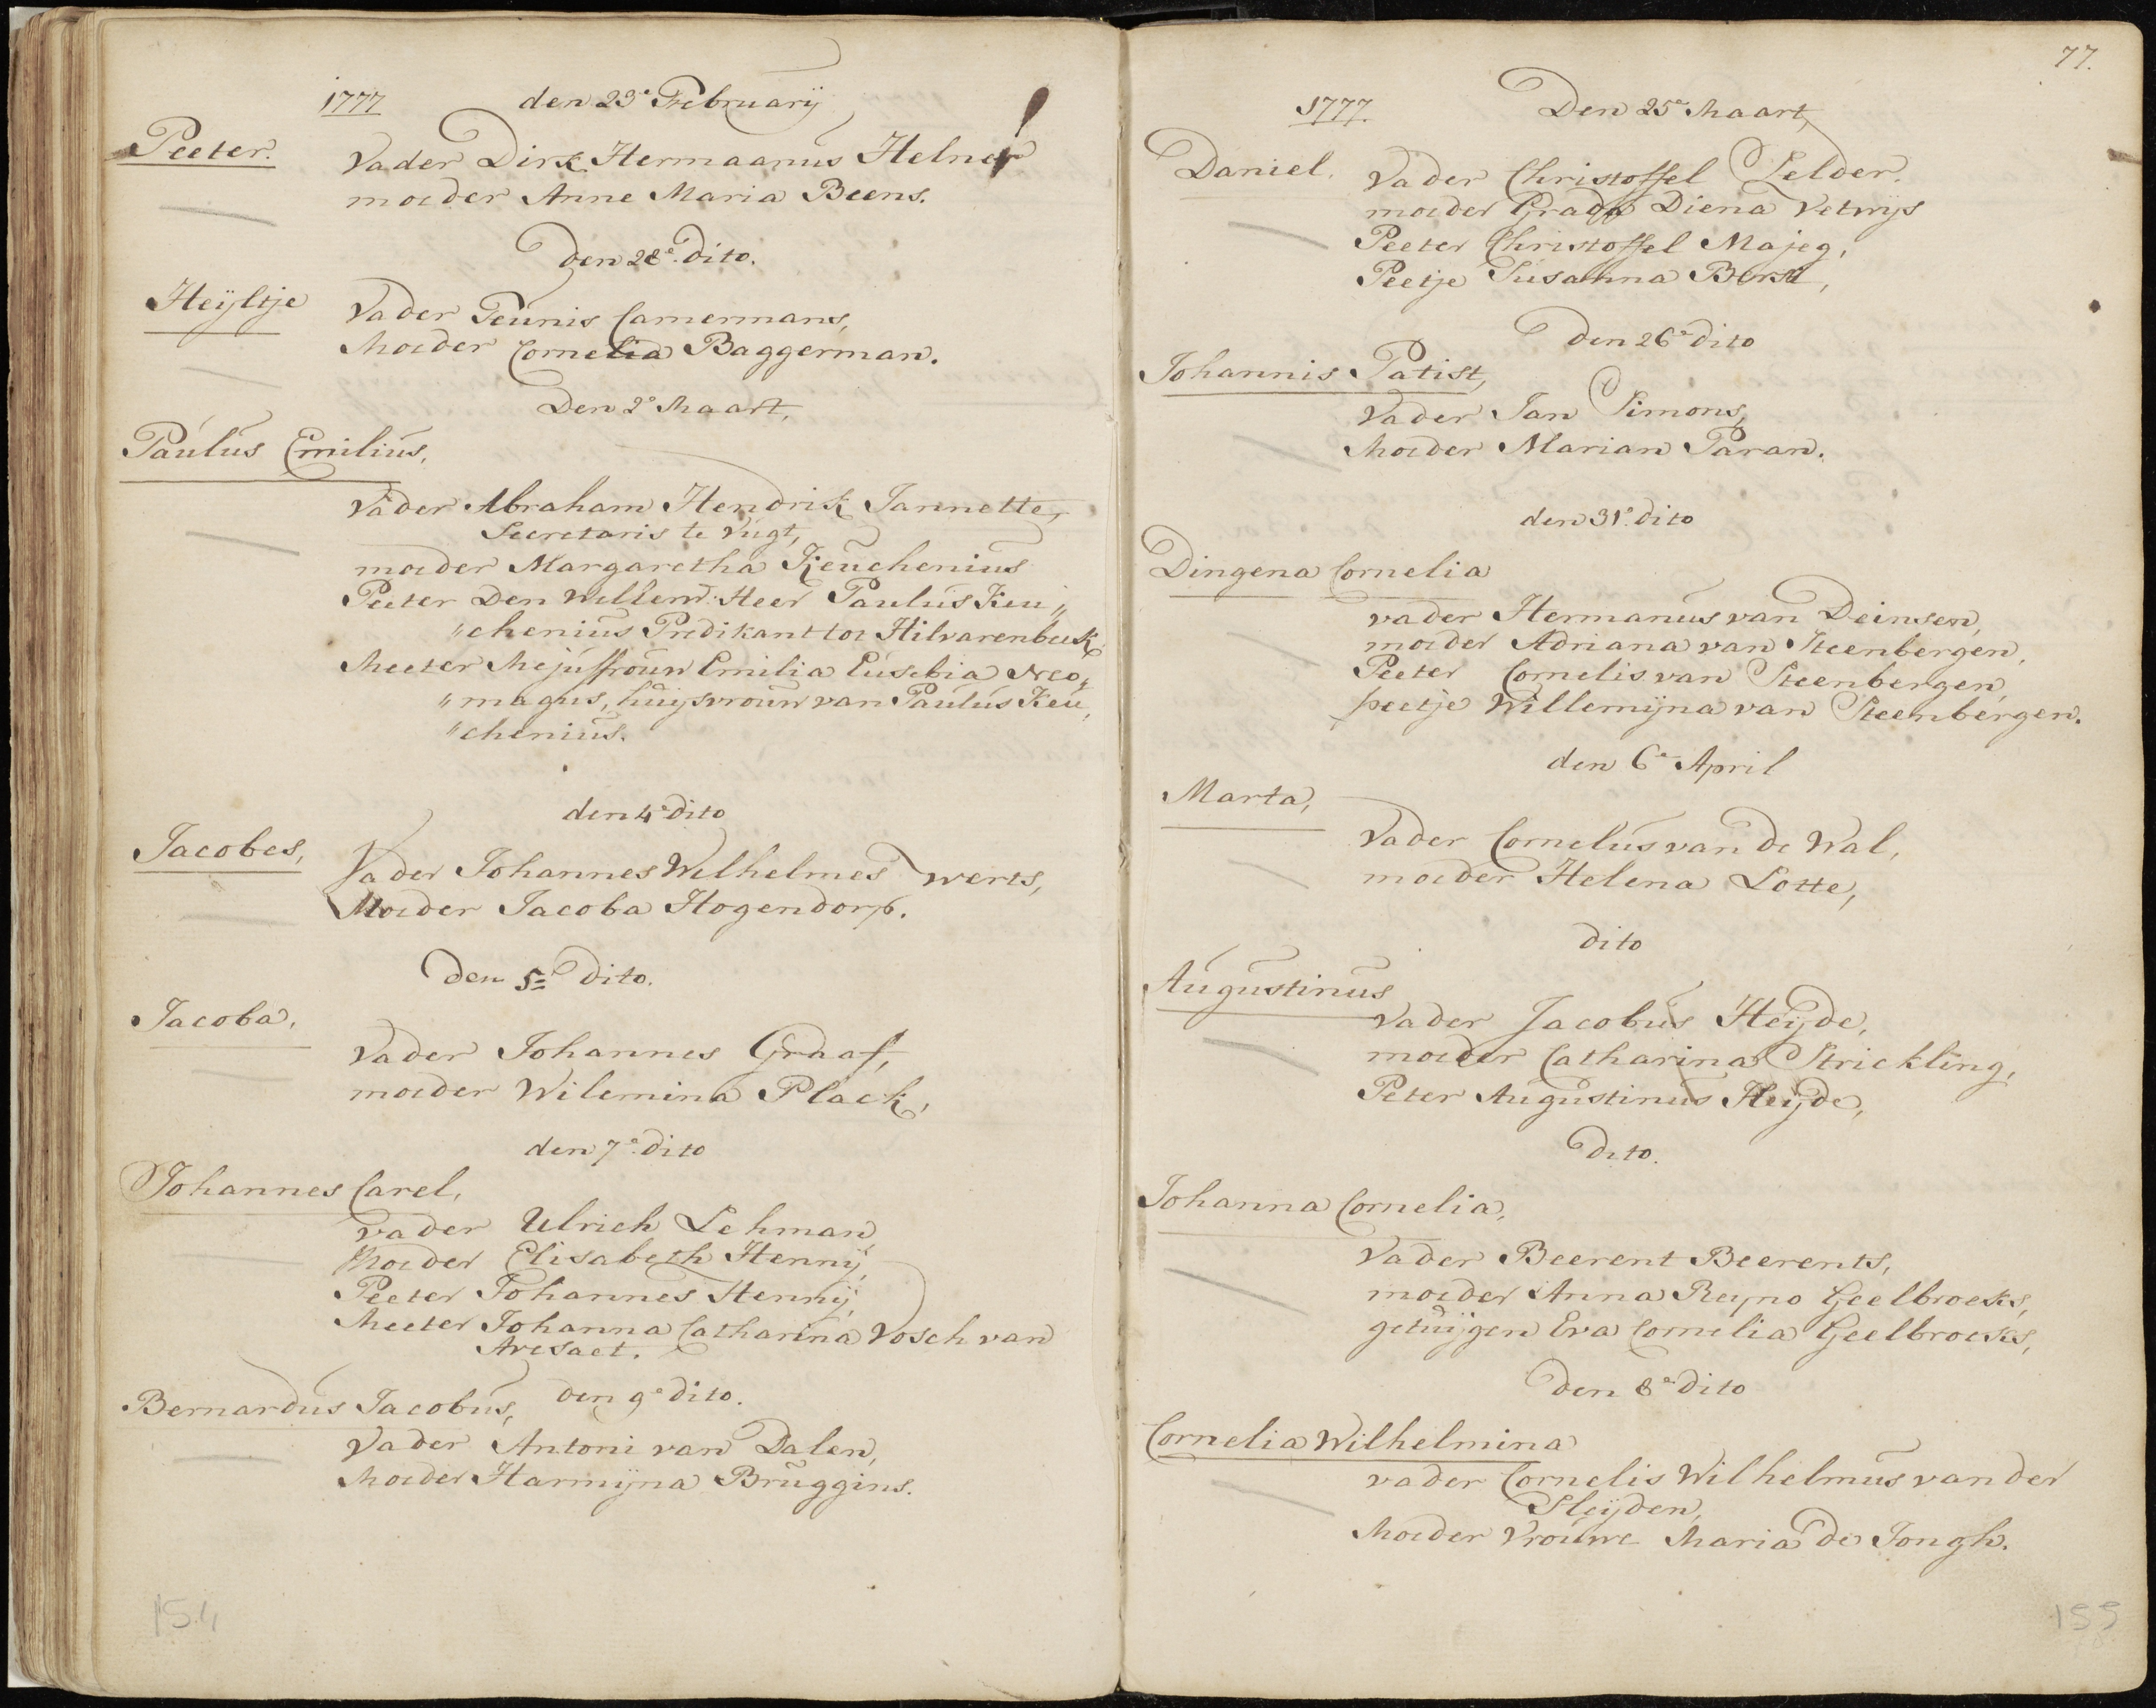 1777 den 23e February
Peeter. Vader Dirk Hermaanus Helner
moeder Anne Maria Beens.
Den 28e. Dito.
Heÿltje Vader Teunis Camermans,
Moeder Cornelia Baggerman.
Den 2e Maart,
Paulus Emilius,
Vader Abraham Hendrik Jannette,
Secretaris te Vugt,
moeder Margaretha Keuchenius
Peeter Den WelEerw: Heer Paulus Keu„
„chenius Predikant tot Hilvarenbeek,
Meeter Mejuffrouw Emilia Eusebia Neo„
„magus, huijsvrouw van Paulus Keu„
„chenius.
den 4e dito
Jacobes, Vader Johannes Welhelmes werts,
Moeder Jacoba Hogendorp.
Den 5e Dito.
Jacoba, Vader Johannes Graaf,
moeder Wilemina Plack,
den 7e. dito
Johannes Carel,
vader Ulrich Lehman,
Moeder Elisabeth Hennij,
Peeter Johannes Hennij,
Meeter Johanna Catharina Vosch van
Avesaet.
Bernardus Jacobus, Den 9e dito.
Vader Antoni van Dalen,
Moeder Harmijna Bruggins.
154
77.
1777. Den 25e Maart,
Daniel. Vader Christoffel Selder.
moeder Grada Diena Vetwijs
Peeter Christoffel Majeg,
Peetje Susanna Borst,
Den 26e dito
Johannis Patist,
Vader Jan Simons,
Moeder Marian Paran.
den 31e. dito
Dingena Cornelia
vader Hermanus van Deinsen,
moeder Adriana van Steenbergen,
Peeter Cornelis van Steenbergen,
peetje Willemijna van Steenbergen.
den 6e April
Marta,
Vader Cornelus van de Wal,
moeder Helena Lotte,
dito
Augustinus
Vader Jacobus Heijde,
moeder Catharina Strickling,
Peter Augustinus Heijde,
Dito.
Johanna Cornelia,
Vader Beerent Beerents,
moeder Anna Reyno Geelbroeks,
getuijgen Eva Cornelia Geelbroeks,
Den 8e dito
Cornelia Wilhelmina
vader Cornelis Wilhelmus van der
Sleÿden,
Moeder Vrouwe Maria de Jongh.
155